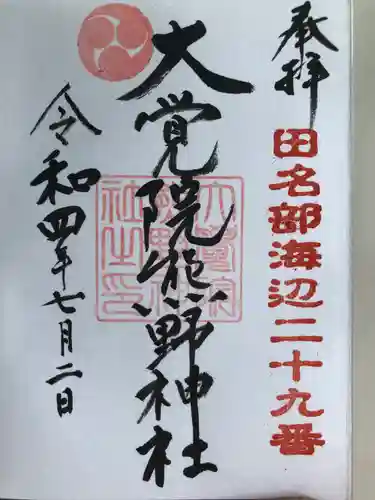 奉拝
田名部海辺二十九番
大覚院熊野神社
大覚院熊野神社之印
令和四年七月二日